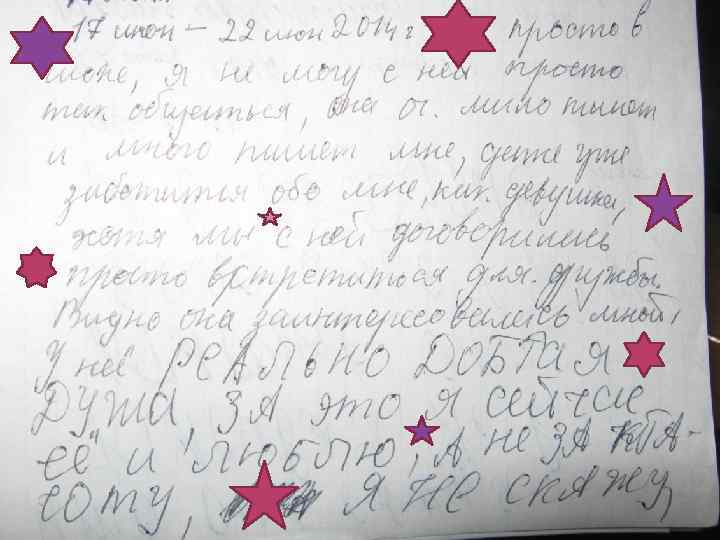 17 июн - 22 июн 2014 г просто в
шоке, я не могу с ней просто
так общаться, она оч. мило пишет
и много пишет мне, даже уже
заботится обо мне, как девушка,
хотя мы с ней договорились
просто встретиться для дружбы.
Видно она заинтересовалась мной,
У неё РЕАЛЬНО ДОБРАЯ
ДУША, ЗА это я сейчас
её и люблю, А не ЗА КРА-
СОТУ, Я НЕ скажу,